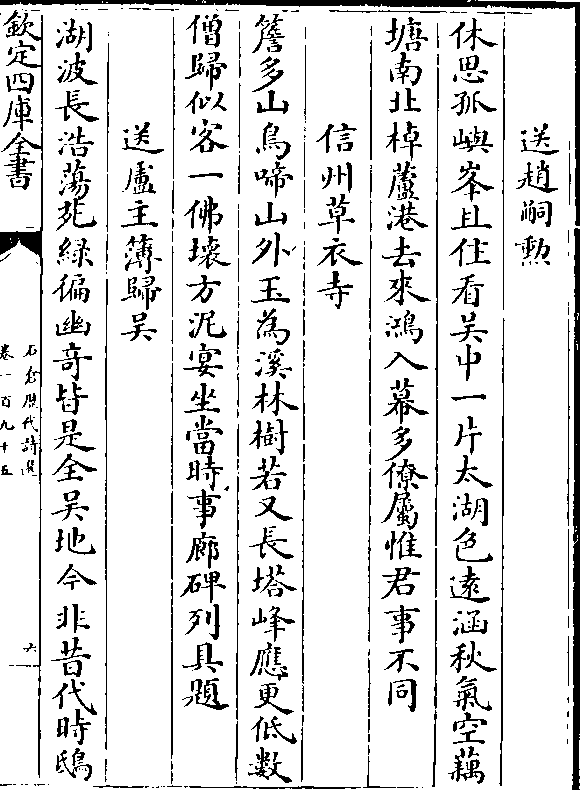 送趙嗣勲
休思孤嶼峯且住看吴中一片太湖色遠涵秋氣空藕
塘南北棹蘆港去來鴻入幕多僚屬惟君事不同
信州草衣寺
簷多山鳥啼山外玉為溪林樹若又長塔峰應更低數
僧歸似客一佛壞方泥宴坐當時事廊碑列具題
送盧主簿歸吴
湖波長浩蕩苑緑徧幽竒皆是全吴地今非昔代時鴟
欽定四庫全書
石倉歷代詩選
卷一百九十五
六